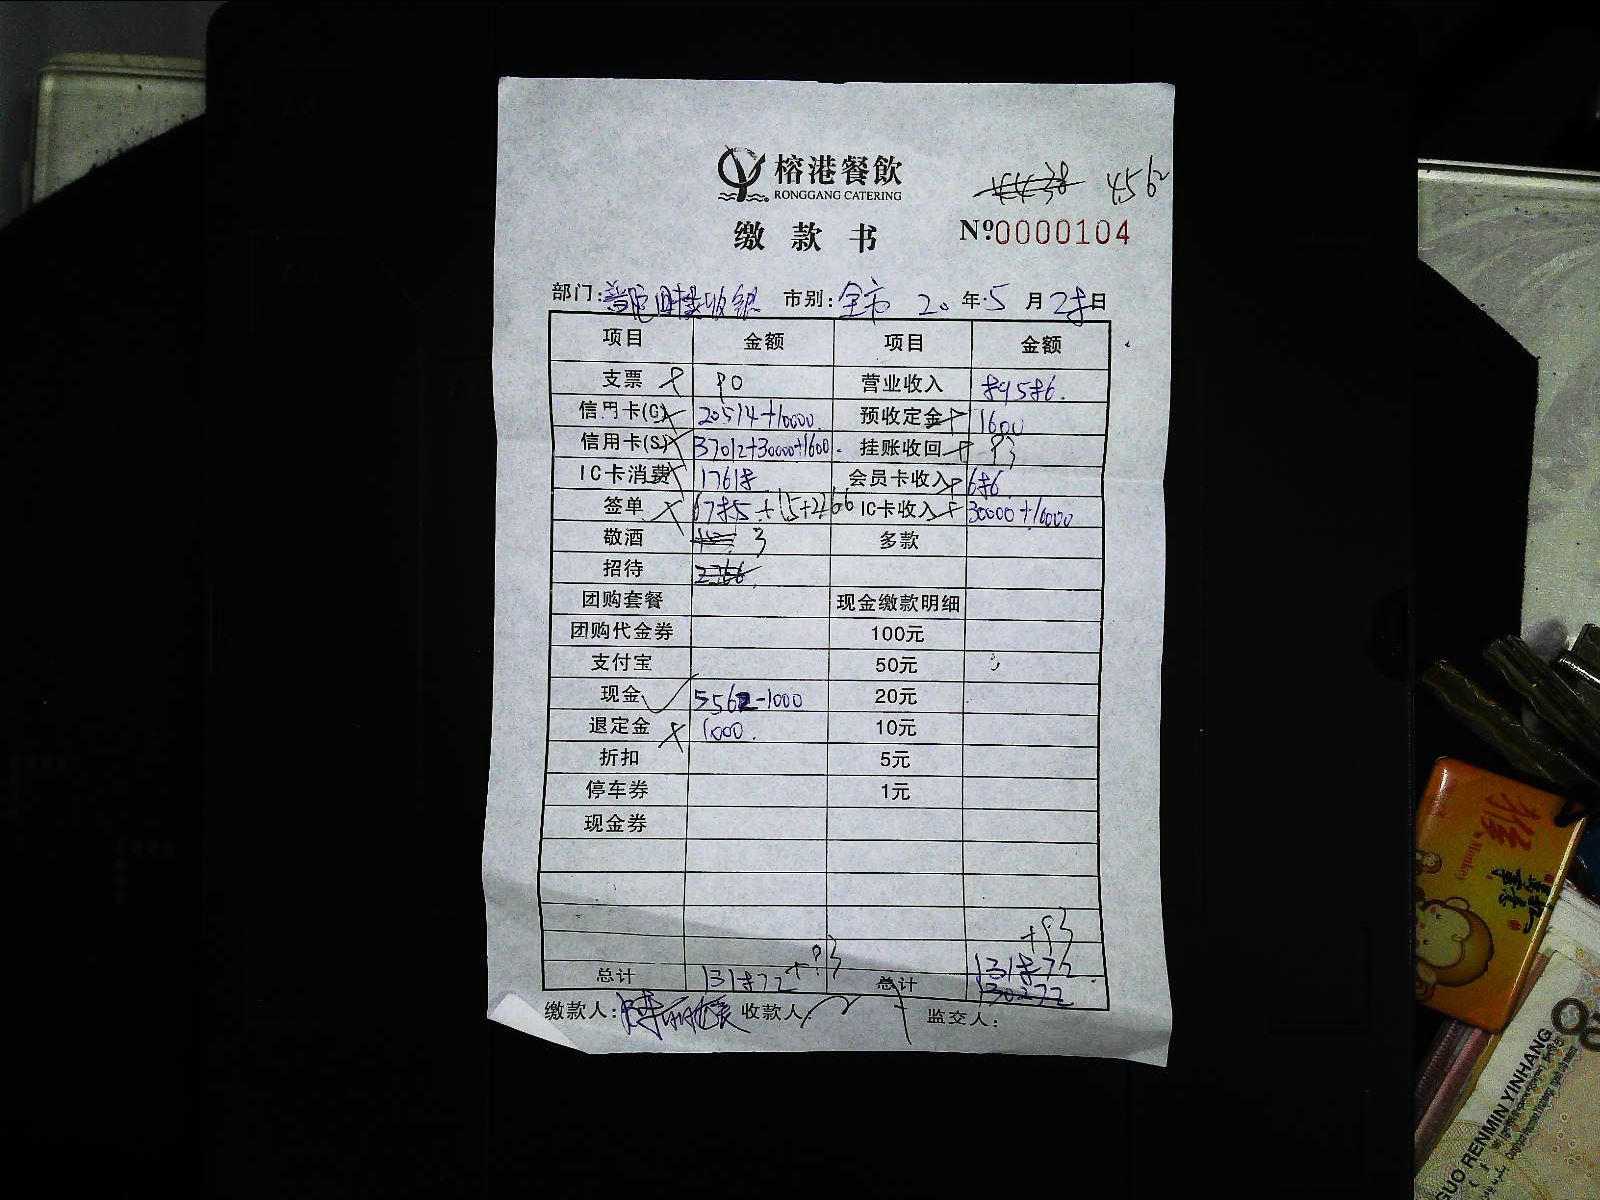 榕港餐飲
RONGGANG CATERING
4562
缴款书
№0000104
部门: 市别:全市 20 年 5 月 28 日
项目 金额 项目 金额
支票 90 营业收入 89586.
信用卡(G) 20514+10000. 预收定金 1600
信用卡(S) 37012+30000+1600. 挂账收回 93
IC卡消费 17618. 会员卡收入 686
签单 6785+15+2266 IC卡收入 30000+10000
敬酒 3 多款
招待 2266
团购套餐 现金缴款明细
团购代金券 100元
支付宝 50元
现金 5562-1000 20元
退定金 1000. 10元
折扣 5元
停车券 1元
现金券
+93
总计 131872+93 总计 131872
130272
缴款人: 收款人: 监交人:
猴
Monkey
GUO RENMIN YINHANG